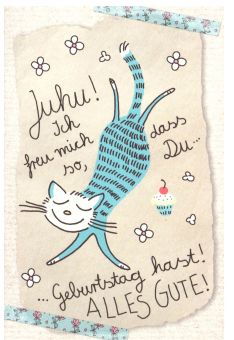 Juhu!
Ich
freu mich
so, dass
Du...
...Geburtstag hast!
ALLES GUTE!